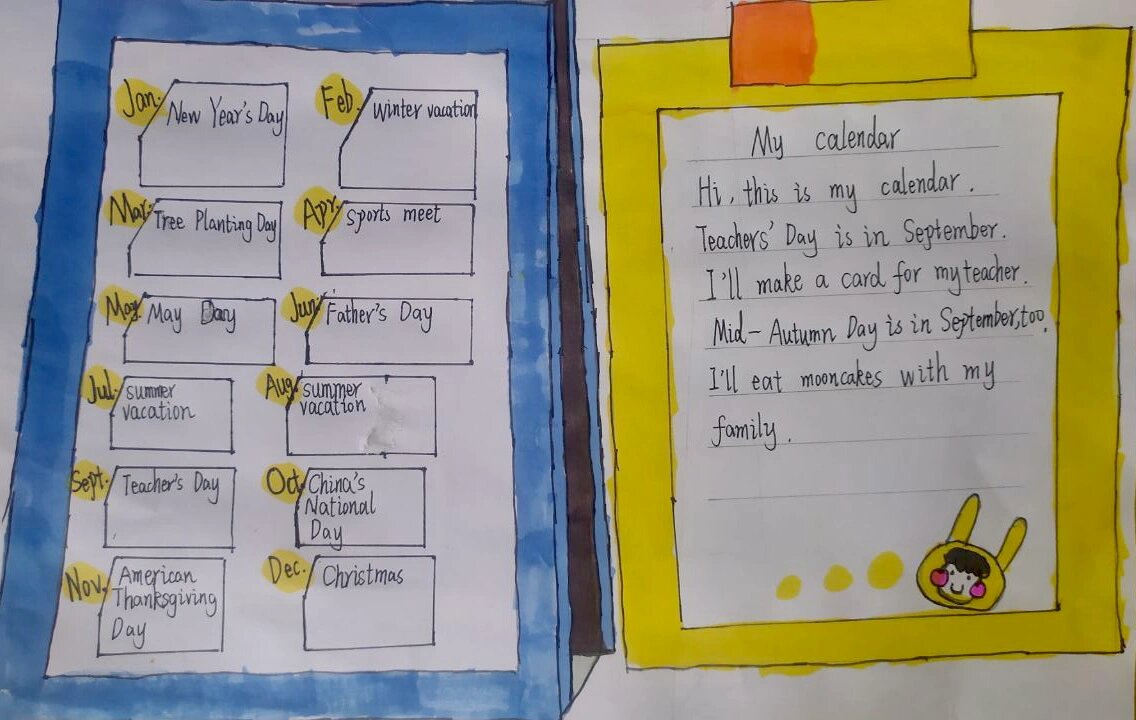 Jan.
New Year's Day
Feb.
Winter vacation
Mar.
Tree Planting Day
Apr.
Sports meet
May
May Day
Jun.
Father's Day
Jul.
summer
vacation
Aug.
summer
vacation
Sept.
Teacher's Day
Oct.
China's
National
Day
Nov.
American
Thanksgiving
Day
Dec.
Christmas
My calendar
Hi, this is my calendar.
Teachers' Day is in September.
I'll make a card for my teacher.
Mid-Autumn Day is in September, too.
I'll eat mooncakes with my
family.